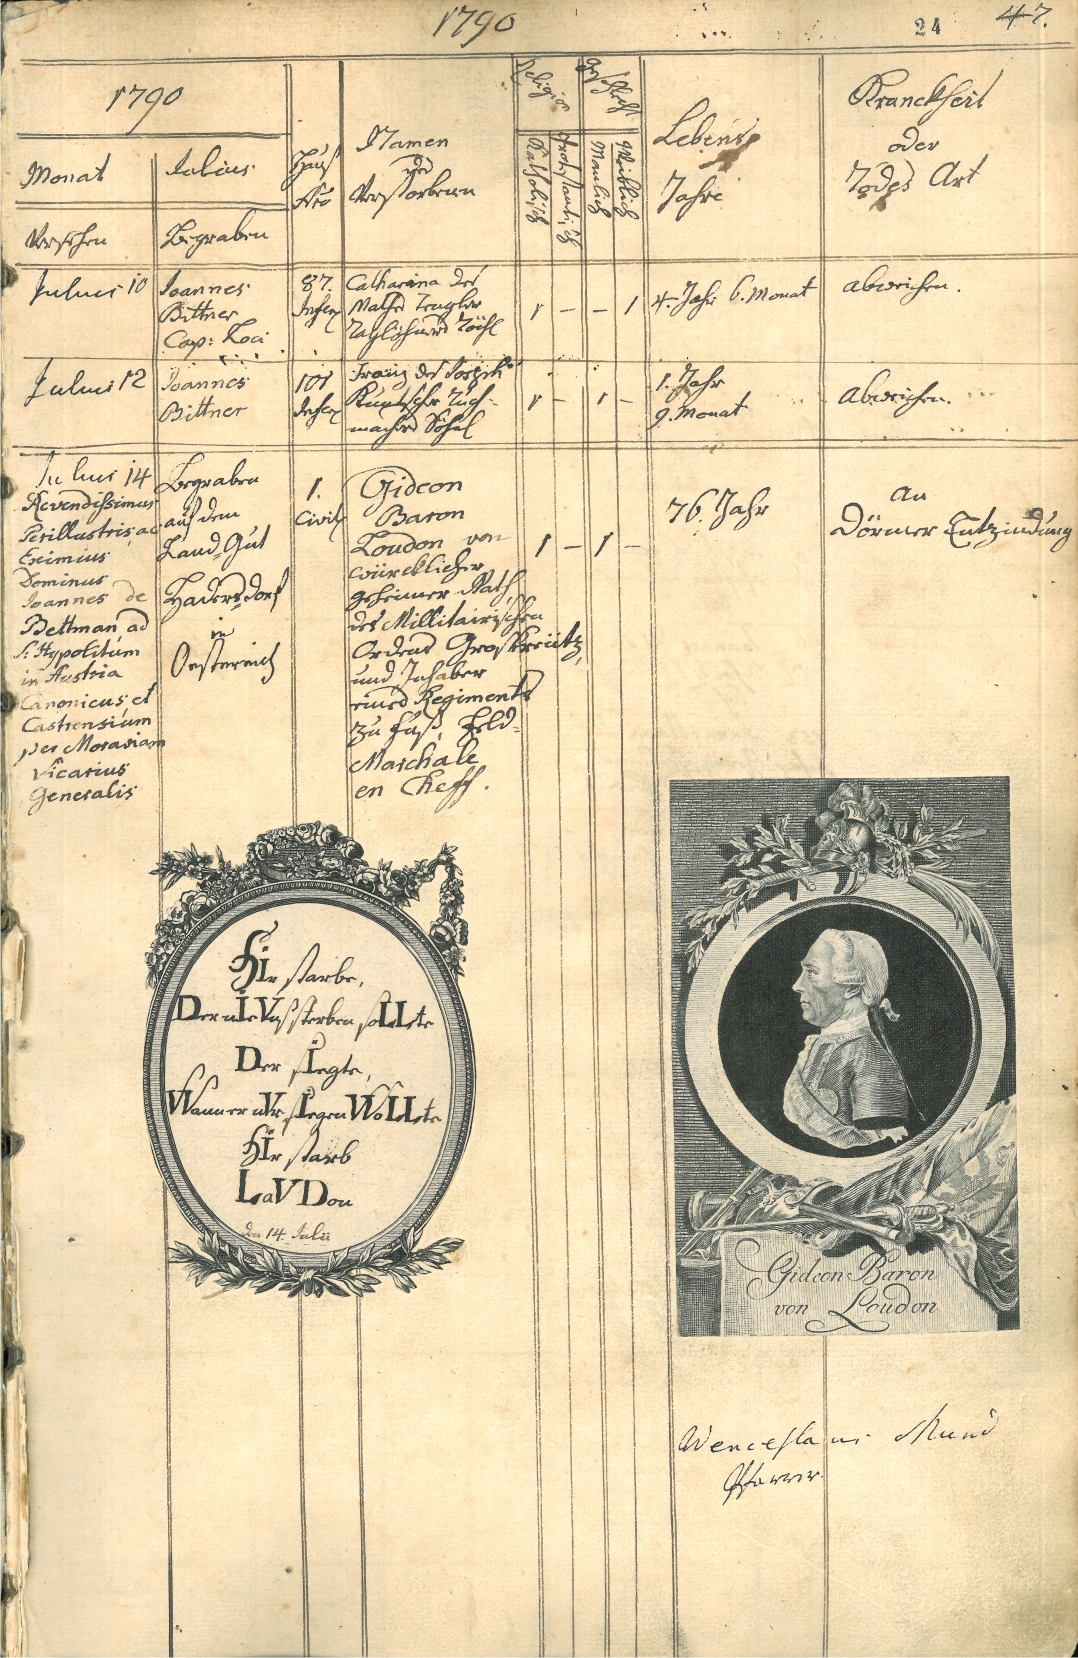 1790
24
47.
1790
Monat
Julius
Hauß
Nro
Namen
der
Verstorbenen
Religion
Geschlecht
Katholisch
Protestantisch
Mänlich
Weiblich
Lebens
Jahre
Kranckheit
oder
Todes Art
Versehen
Begraben
Julius 10
Joannes
Bittner
Cap: Loci
87.
Catharina des
Taglöhners Töchl
1 – – 1
4. Jahr 6. Monat
Abweichen.
Julius 12
Joannes
Bittner
101
Franz des Joseph
Tuch-
machers Söhnl
1 – 1 –
1. Jahr
9. Monat
Abweichen.
Julius 14
Reverendissimus
Perillustris, ac
Eximius
Dominus
Joannes de
Bettman, ad
S. Hypolitum
in Austria
Canonicus, et
Castrensium
per Moraviam
Vicarius
Generalis
Begraben
auf dem
Land-Gut
Hadersdorf
in
Oesterreich
1.
Civit
Gideon
Baron
Loudon von
würcklicher
geheimer Rath,
des Millitairischen
Ordens Groskreütz,
und Inhaber
eines Regiments
zu Fuß, Feld-
Marchale
en Cheff.
1 – 1 –
76. Jahr
An
Dörmer Entzindung
HIr starbe,
Der nIe Vns sterben soLLte
Der sIegte,
Wann er nVr sIegen WoLLte
HIr starb
LaVDon
den 14. Julii
Gideon Baron
von Loudon
Wenceslaus Mund
Pfarrer